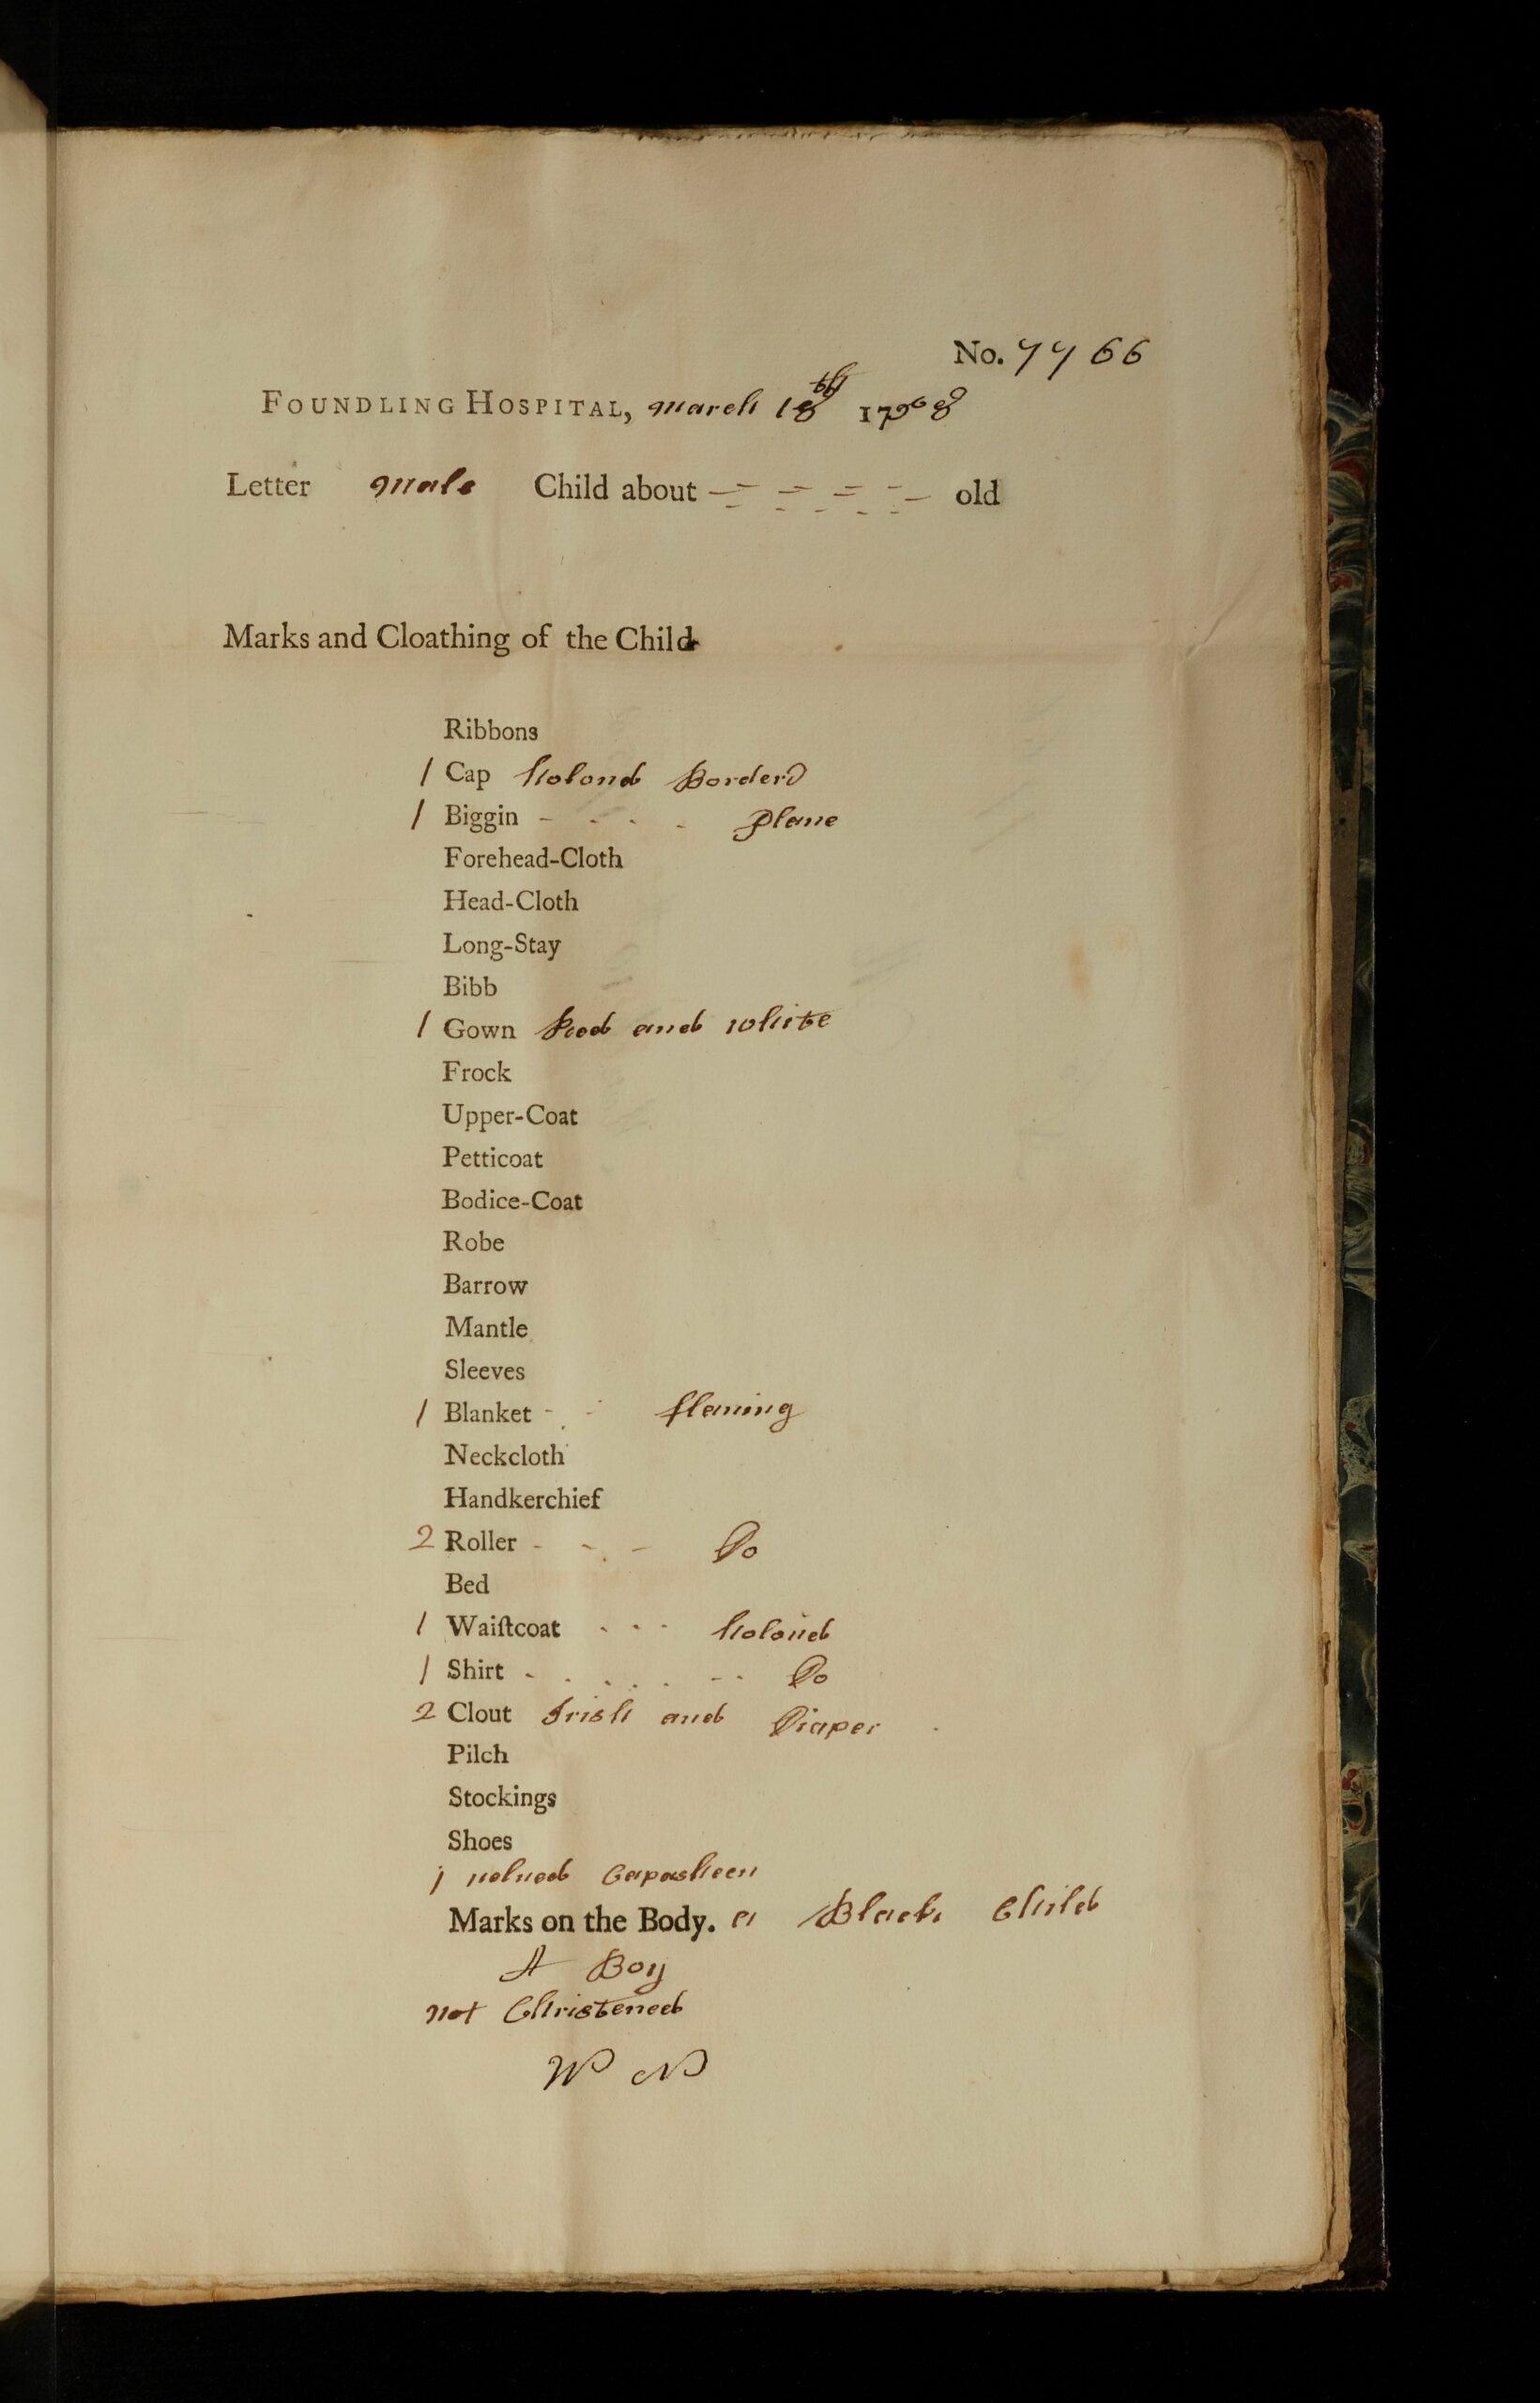 No. 7766
FOUNDLING HOSPITAL, march 18th 1758
Letter male Child about - - - - - old
Marks and Cloathing of the Child
Ribbons
1 Cap holond Borderd
1 Biggin - - - - plane
Forehead-Cloth
Head-Cloth
Long-Stay
Bibb
1 Gown Red and white
Frock
Upper-Coat
Petticoat
Bodice-Coat
Robe
Barrow
Mantle
Sleeves
1 Blanket - - flaning
Neckcloth
Handkerchief
2 Roller - - - Do
Bed
1 Waiſtcoat - - - holond
1 Shirt - - - - - - Do
2 Clout Irish and Diaper
Pilch
Stockings
Shoes
1 velved Capasheen
Marks on the Body. a Black Child
A Boy
not Christened
W N